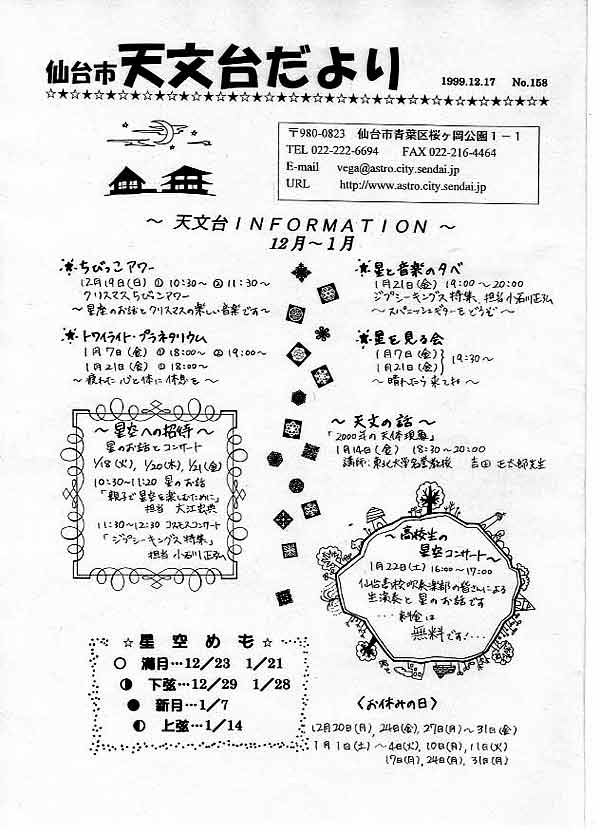 仙台市 天文台だより 1999.12.17 No.158
〒980-0823 仙台市青葉区桜ヶ岡公園1-1
TEL 022-222-6694 FAX 022-216-4464
E-mail vega@astro.city.sendai.jp
URL http://www.astro.city.sendai.jp
～ 天文台INFORMATION ～
12月～1月
ちびっこアワー
12月19日(日) ① 10:30～ ② 11:30～
クリスマスちびこアワー
～星座のお話とクリスマスの楽しい音楽です～
トワイライト・プラネタリウム
1月7日(金) ① 18:00～ ② 19:00～
1月21日(金) ① 18:00～
～疲れた心と体に休息を～
～星空への招待～
星のお話とコンサート
1/18(火), 1/20(木), 1/21(金)
10:30～11:20 星のお話
「親子で星空を楽しむために」
担当 大江宏典
11:30～12:30 コスモスコンサート
「ジプシーキングス特集」
担当 小石川正弘
星と音楽の夕べ
1月21日(金) 19:00～20:00
ジプシーキングス特集、担当 小石川正弘
～スパニッシュギターをどうぞ～
星を見る会
1月7日(金)
1月21日(金) } 19:30～
～晴れたら来てね～
～天文の話～
「2000年の天体現象」
1月14日(金) 18:30～20:00
講師:東北大学名誉教授 吉田正太郎先生
～高校生の
星空コンサート～
1月22日(土) 16:00～17:00
仙台高校吹奏楽部の皆さんによる
生演奏と星のお話です
・・・料金は
無料です!・・・
☆ 星空めも ☆
○ 満月…12/23 1/21
◑ 下弦…12/29 1/28
● 新月…1/7
◐ 上弦…1/14
〈お休みの日〉
12月20日(月), 24日(金), 27日(月)～31日(金)
1月1日(土)～4日(火), 10日(月), 11日(火)
17日(月), 24日(月), 31日(月)